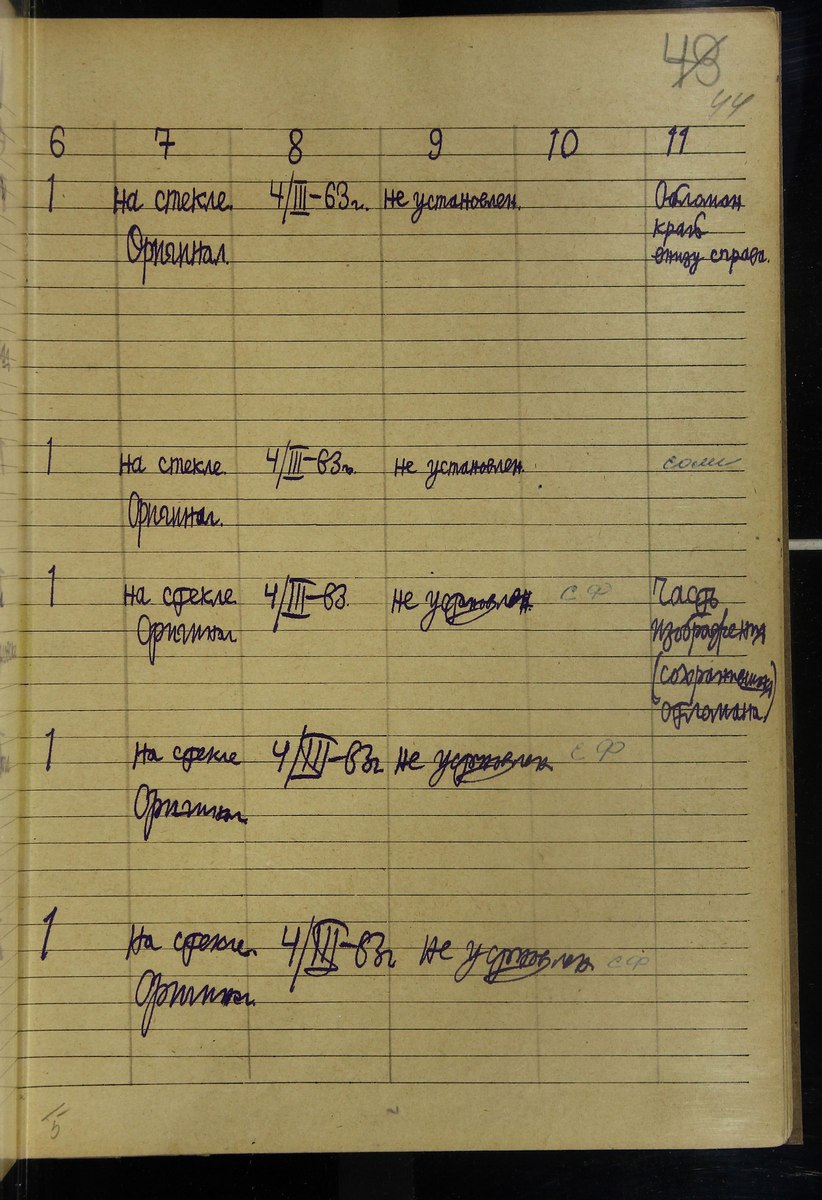 48
44
6 7 8 9 10 11
1 На стекле. 4/III-63г. Не установлен. Обломан
край
Оригинал.
внизу справа.
1 На стекле. 4/III-63г. Не установлен.
Оригинал.
1 На стекле 4/III-63. Не установлен СФ Часть
Оригинал изображения
(сохранившаяся)
отломана.
1 На стекле 4/III-63г Не установлен СФ
Оригинал.
1 На стекле. 4/III-63г Не установлен СФ
Оригинал.
5